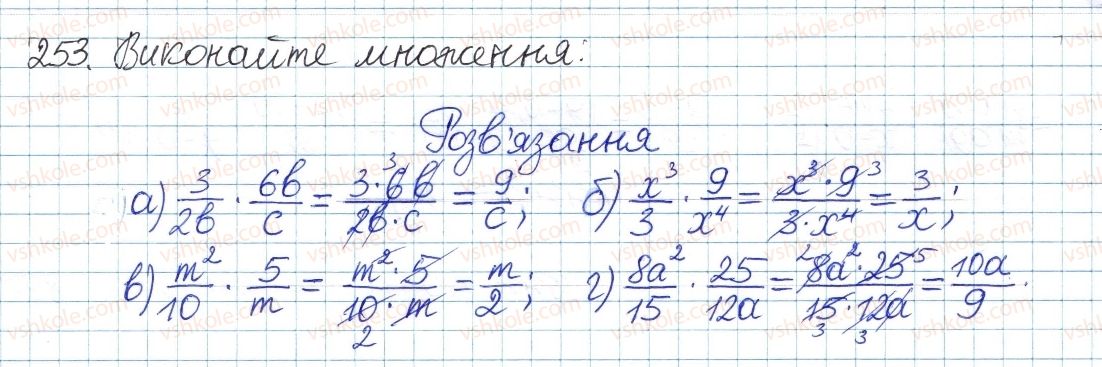 253. Виконайте множення:
Розв'язання
а) 3/2b · 6b/c = 3·6b/2b·c = 9/c; б) x³/3 · 9/x⁴ = x³·9/3·x⁴ = 3/x;
в) m²/10 · 5/m = m²·5/10·m = m/2; г) 8a²/15 · 25/12a = 8a²·25/15·12a = 10a/9.